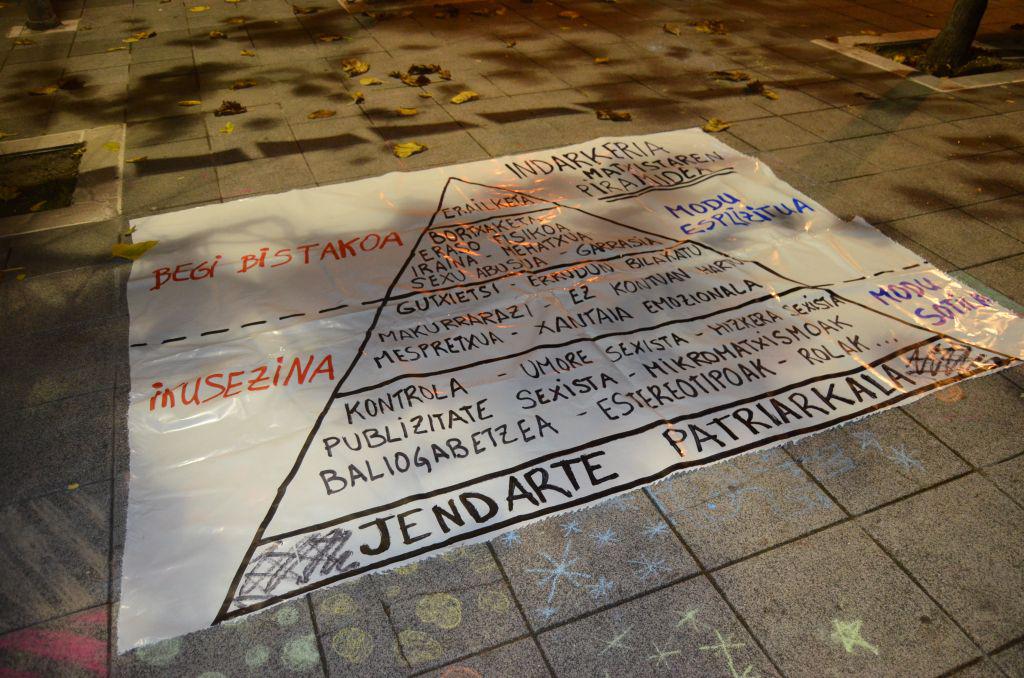 INDARKERIA
MATXISTAREN
PIRAMIDEA
ERAILKETA
BORTXAKETA
ERASO FISIKOA
IRAINA - MEHATXUA
SEXU ABUSUA - GARRASIA
GUTXIETSI - ERRUDUN BILAKATU
MAKURRARAZI EZ KONTUAN HARTU
MESPRETXUA - XANTAIA EMOZIONALA
KONTROLA - UMORE SEXISTA - HIZKERA SEXISTA
PUBLIZITATE SEXISTA - MIKROMATXISMOAK
BALIOGABETZEA - ESTEREOTIPOAK - ROLAK...
JENDARTE PATRIARKALA
BEGI BISTAKOA
IKUSEZINA
MODU
ESPLIZITUA
MODU